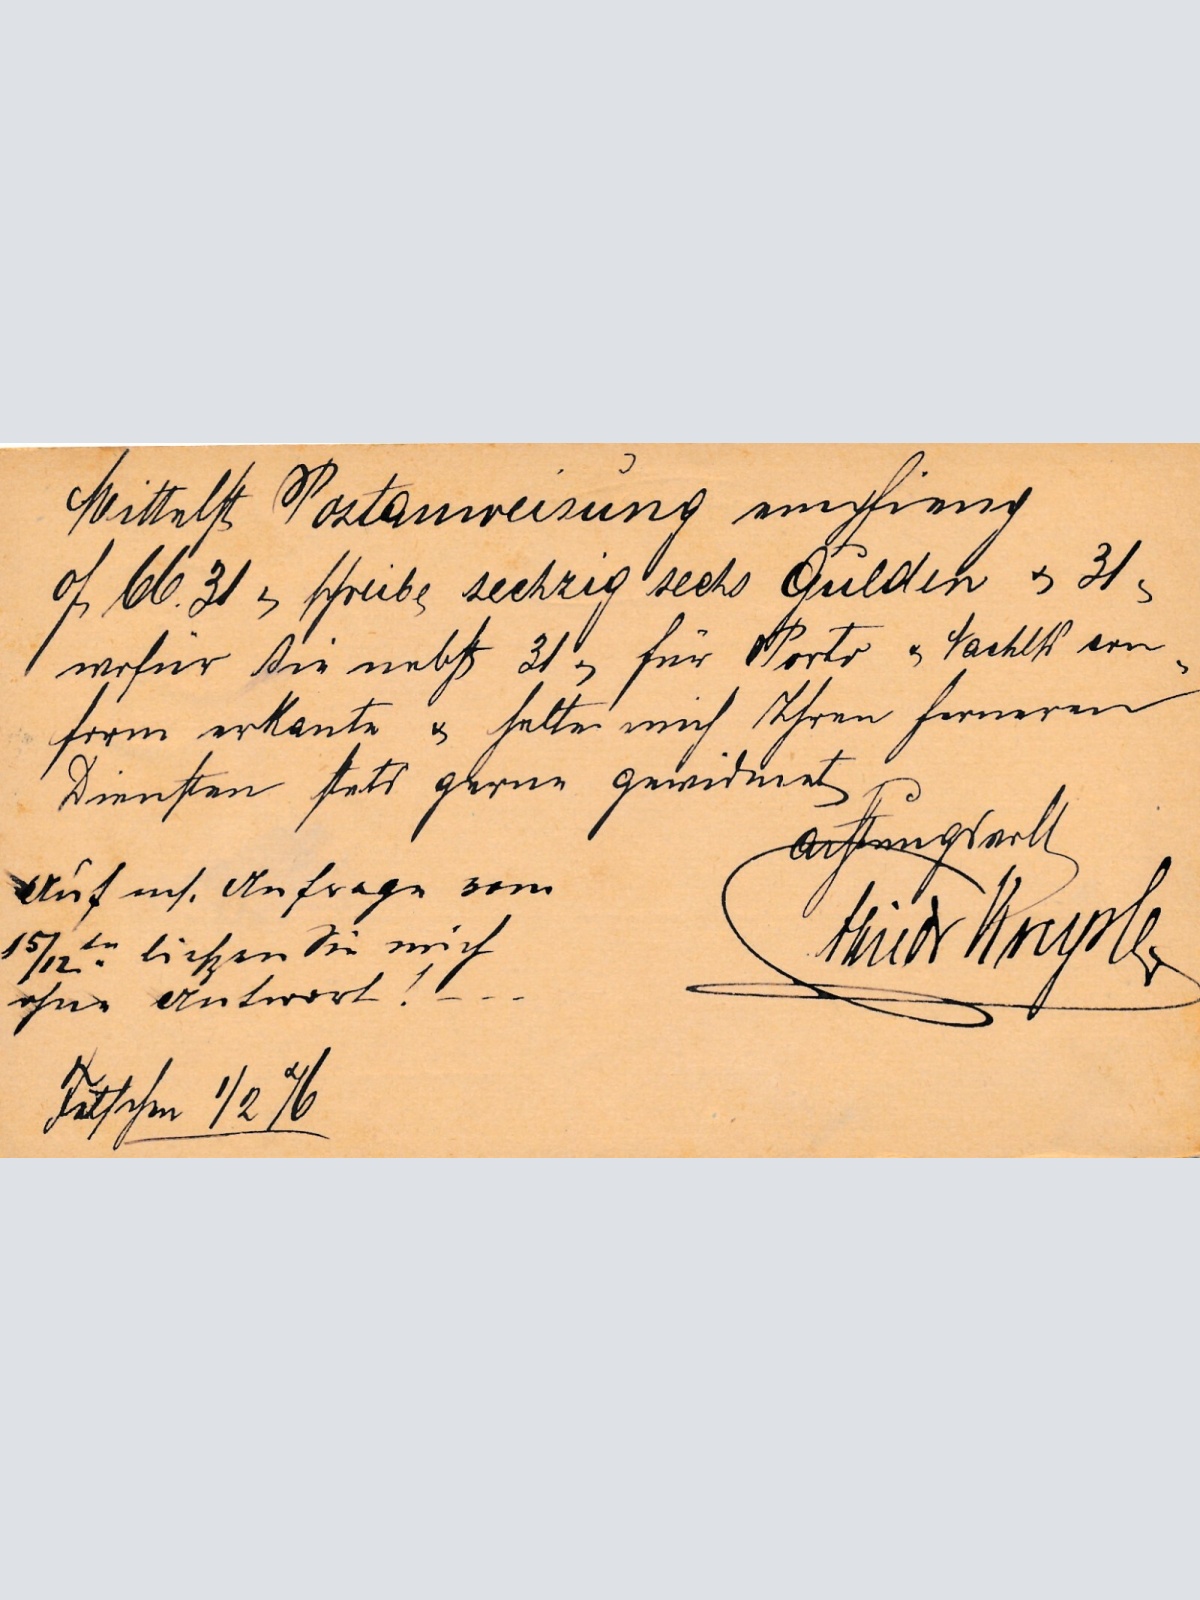 Mittelst Postanweisung empfieng
of 66.31 x, schreibe sechzig sechs Gulden & 31 x,
wofür Sie nebst 31 x, für Porto & Nachlß con-
form erkante & halte mich Ihren ferneren
Diensten stets gerne gewidmet
achtungsvoll
Auf m/. Anfrage vom
15/12 ten ließen Sie mich
ohne Antwort! - - -
Tetschen 1/2 76